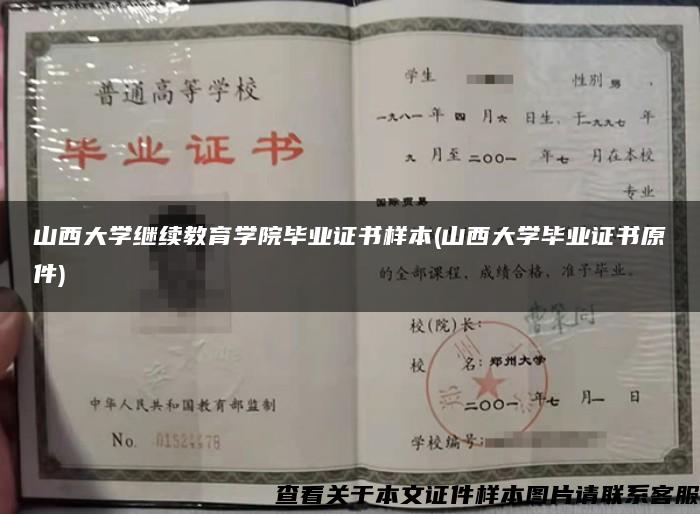 普通高等学校
毕业证书
中华人民共和国教育部监制
No. 01524478
学生 性别 男 ，
一九八一年 四 月六 日生，于一九九七 年
九 月至二〇〇一 年七 月在本校
国际贸易 专业
山西大学继续教育学院毕业证书样本(山西大学毕业证书原
件)
的全部课程，成绩合格，准予毕业。
校(院)长：
校 名：郑州大学
二〇〇一 年七 月一 日
学校编号：
查看关于本文证件样本图片请联系客服